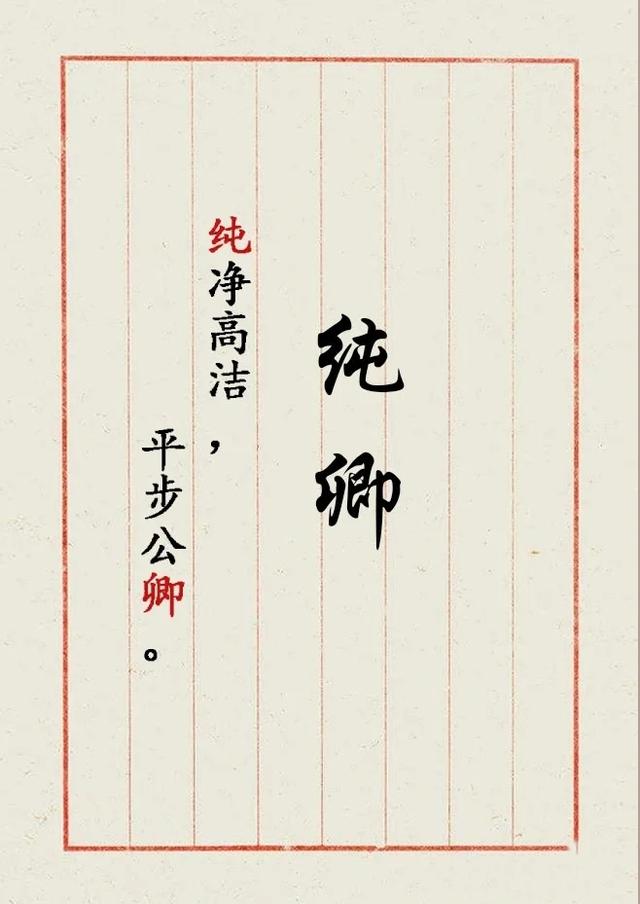 纯卿
纯净高洁，
平步公卿。